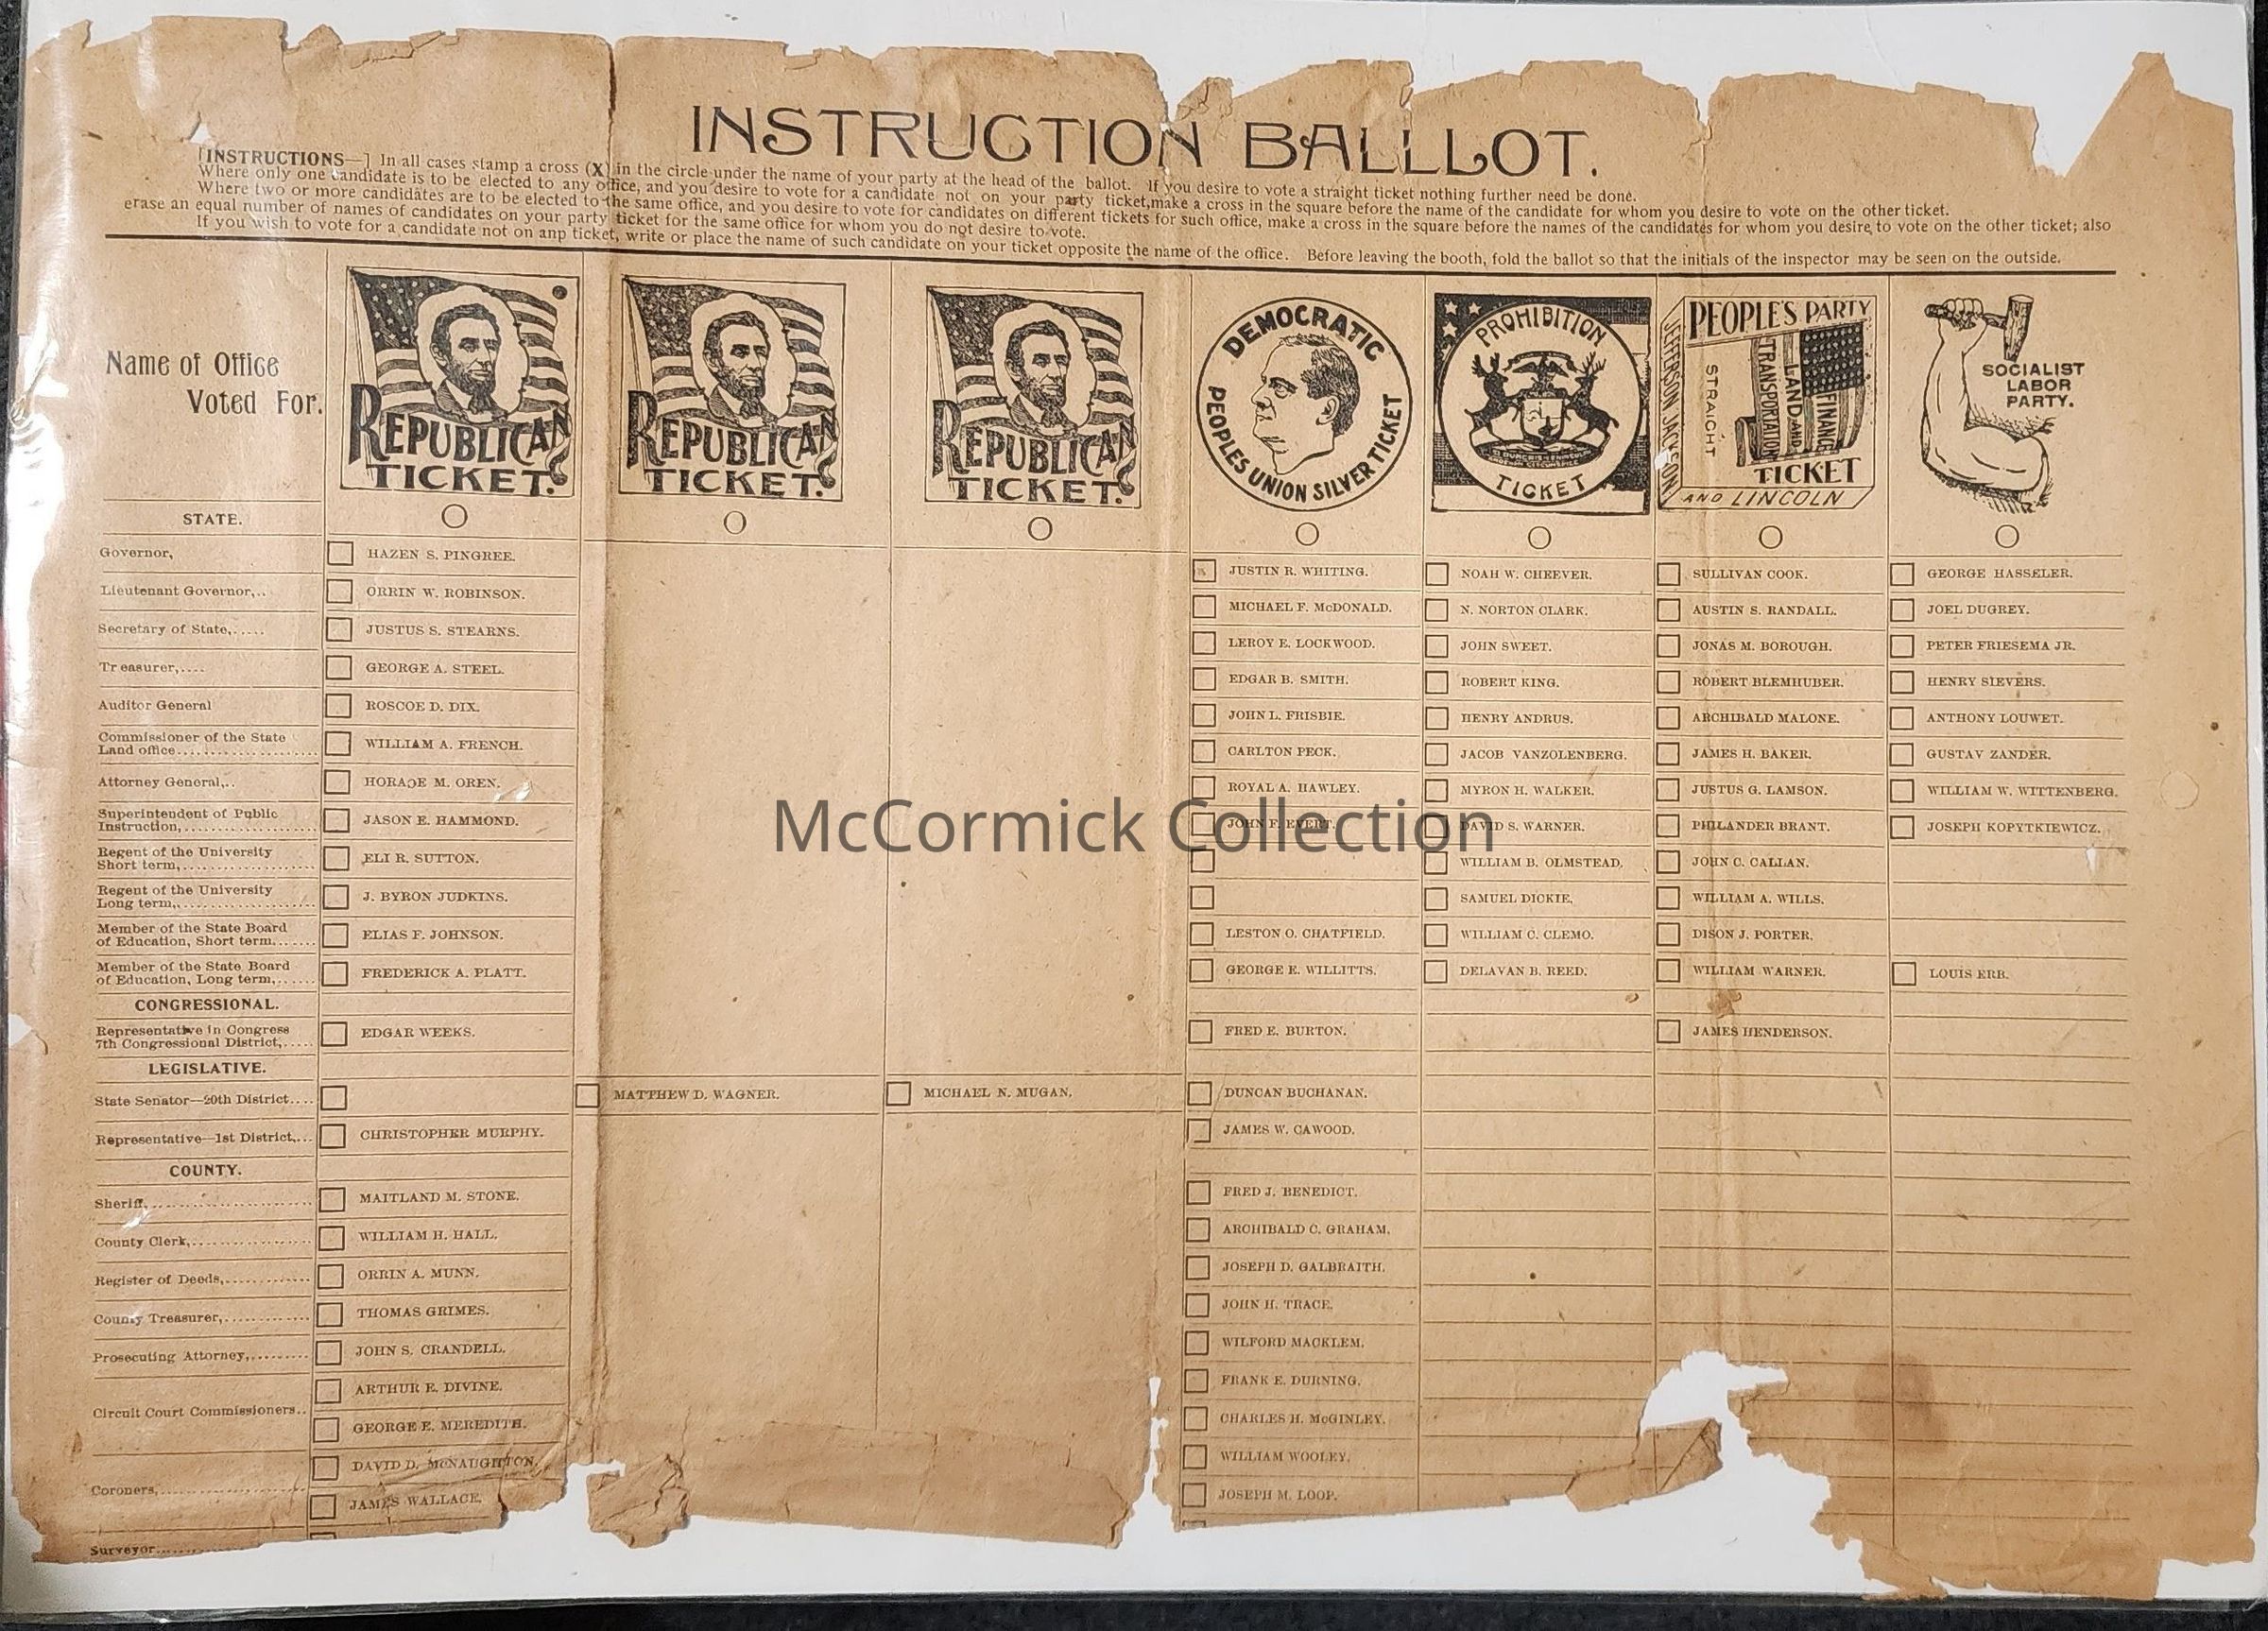 INSTRUCTION BALLLOT.
[INSTRUCTIONS—] In all cases stamp a cross (X) in the circle under the name of your party at the head of the ballot. If you desire to vote a straight ticket nothing further need be done.
Where only one candidate is to be elected to any office, and you desire to vote for a candidate not on your party ticket,make a cross in the square before the name of the candidate for whom you desire to vote on the other ticket.
Where two or more candidates are to be elected to the same office, and you desire to vote for candidates on different tickets for such office, make a cross in the square before the names of the candidates for whom you desire to vote on the other ticket; also
erase an equal number of names of candidates on your party ticket for the same office for whom you do not desire to vote.
If you wish to vote for a candidate not on anp ticket, write or place the name of such candidate on your ticket opposite the name of the office. Before leaving the booth, fold the ballot so that the initials of the inspector may be seen on the outside.
Name of Office
Voted For.
STATE.
Governor,
Lieutenant Governor,..
Secretary of State,.....
Treasurer,....
Auditor General
Commissioner of the State
Land office....................
Attorney General,..
Superintendent of Public
Instruction,....................
Regent of the University
Short term,....................
Regent of the University
Long term,....................
Member of the State Board
of Education, Short term.......
Member of the State Board
of Education, Long term,......
CONGRESSIONAL.
Representative in Congress
7th Congressional District,.....
LEGISLATIVE.
State Senator—20th District....
Representative—1st District,...
COUNTY.
Sheriff,........................
County Clerk,..................
Register of Deeds,.............
County Treasurer,.............
Prosecuting Attorney,.........
Circuit Court Commissioners..
Coroners,......................
Surveyor.............
REPUBLICAN
TICKET.
HAZEN S. PINGREE.
ORRIN W. ROBINSON.
JUSTUS S. STEARNS.
GEORGE A. STEEL.
ROSCOE D. DIX.
WILLIAM A. FRENCH.
HORACE M. OREN.
JASON E. HAMMOND.
ELI R. SUTTON.
J. BYRON JUDKINS.
ELIAS F. JOHNSON.
FREDERICK A. PLATT.
EDGAR WEEKS.
CHRISTOPHER MURPHY.
MAITLAND M. STONE.
WILLIAM H. HALL.
ORRIN A. MUNN.
THOMAS GRIMES.
JOHN S. CRANDELL.
ARTHUR E. DIVINE.
GEORGE E. MEREDITH.
DAVID D. McNAUGHTON.
JAMES WALLACE.
REPUBLICAN
TICKET.
MATTHEW D. WAGNER.
REPUBLICAN
TICKET.
MICHAEL N. MUGAN.
DEMOCRATIC
PEOPLES UNION SILVER TICKET
JUSTIN R. WHITING.
MICHAEL F. McDONALD.
LEROY E. LOCKWOOD.
EDGAR B. SMITH.
JOHN L. FRISBIE.
CARLTON PECK.
ROYAL A. HAWLEY.
JOHN F. EVERT.
LESTON O. CHATFIELD.
GEORGE E. WILLITTS.
FRED E. BURTON.
DUNCAN BUCHANAN.
JAMES W. CAWOOD.
FRED J. BENEDICT.
ARCHIBALD C. GRAHAM.
JOSEPH D. GALBRAITH.
JOHN H. TRACE.
WILFORD MACKLEM.
FRANK E. DURNING.
CHARLES H. McGINLEY.
WILLIAM WOOLEY.
JOSEPH M. LOOP.
PROHIBITION
TICKET
NOAH W. CHEEVER.
N. NORTON CLARK.
JOHN SWEET.
ROBERT KING.
HENRY ANDRUS.
JACOB VANZOLENBERG.
MYRON H. WALKER.
DAVID S. WARNER.
WILLIAM B. OLMSTEAD.
SAMUEL DICKIE.
WILLIAM C. CLEMO.
DELAVAN B. REED.
PEOPLE'S PARTY
JEFFERSON, JACKSON,
STRAIGHT
TRANSPORTATION
LAND AND
FINANCE
TICKET
AND LINCOLN
SULLIVAN COOK.
AUSTIN S. RANDALL.
JONAS M. BOROUGH.
ROBERT BLEMHUBER.
ARCHIBALD MALONE.
JAMES H. BAKER.
JUSTUS G. LAMSON.
PHILANDER BRANT.
JOHN C. CALLAN.
WILLIAM A. WILLS.
DISON J. PORTER.
WILLIAM WARNER.
JAMES HENDERSON.
SOCIALIST
LABOR
PARTY.
GEORGE HASSELER.
JOEL DUGREY.
PETER FRIESEMA JR.
HENRY SIEVERS.
ANTHONY LOUWET.
GUSTAV ZANDER.
WILLIAM W. WITTENBERG.
JOSEPH KOPYTKIEWICZ.
LOUIS ERB.
McCormick Collection